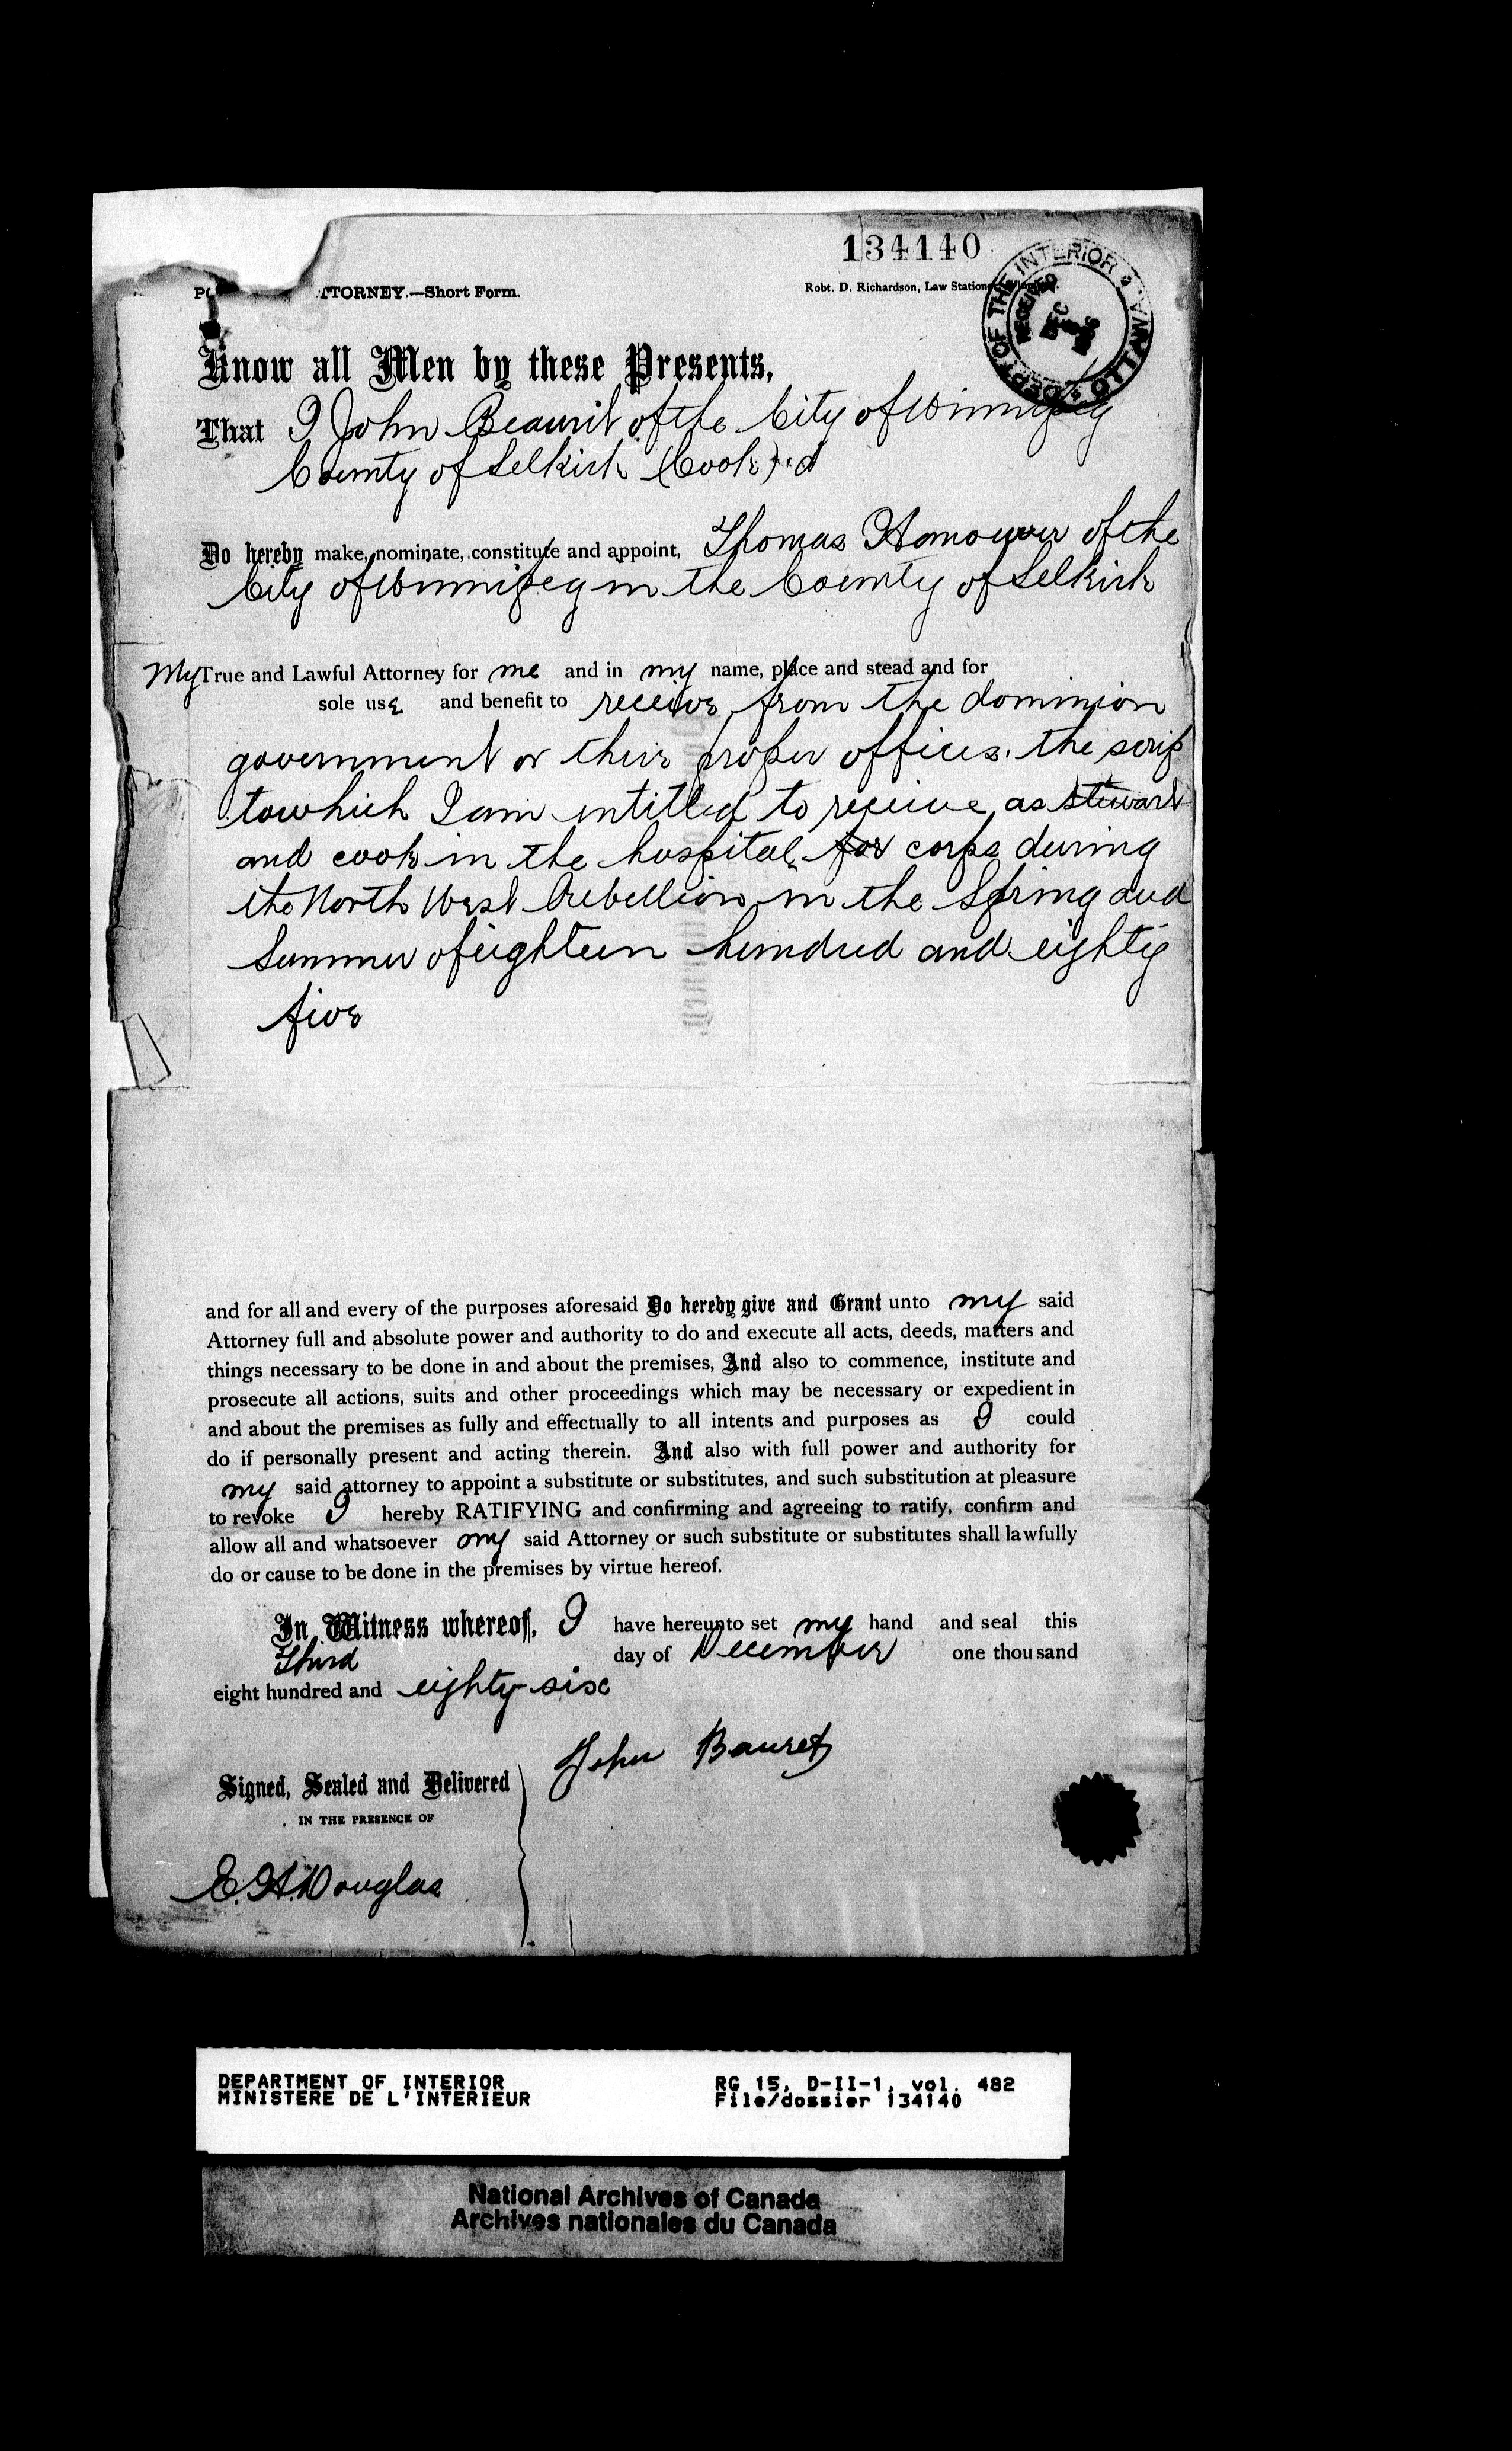 134140
TTORNEY.—Short Form.
Robt. D. Richardson, Law Stationer,
DEPT OF THE INTERIOR OTTAWA
RECEIVED
DEC
Know all Men by these Presents,
That I John Beaurit of the City of Winnipeg
County of Selkirk (Cook)
Do hereby make, nominate, constitute and appoint, Thomas Hanower of the
City of Winnipeg in the County of Selkirk
My True and Lawful Attorney for me and in my name, place and stead and for
sole use and benefit to receive from the dominion
government or their proper offices. the scrip
to which I am intitled to receive as stewart
and cook in the hospital for corps during
the North West Rebellion in the Spring and
Summer of eighteen hundred and eighty
five
and for all and every of the purposes aforesaid Do hereby give and Grant unto my said
Attorney full and absolute power and authority to do and execute all acts, deeds, matters and
things necessary to be done in and about the premises, And also to commence, institute and
prosecute all actions, suits and other proceedings which may be necessary or expedient in
and about the premises as fully and effectually to all intents and purposes as I could
do if personally present and acting therein. And also with full power and authority for
my said attorney to appoint a substitute or substitutes, and such substitution at pleasure
to revoke I hereby RATIFYING and confirming and agreeing to ratify, confirm and
allow all and whatsoever my said Attorney or such substitute or substitutes shall lawfully
do or cause to be done in the premises by virtue hereof.
In Witness whereof, I have hereunto set my hand and seal this
Third day of December one thousand
eight hundred and eighty six
John Bauret
Signed, Sealed and Delivered
IN THE PRESENCE OF
E. H. Douglas
DEPARTMENT OF INTERIOR
MINISTERE DE L'INTERIEUR
RG 15, D-II-1, vol. 482
File/dossier 134140
National Archives of Canada
Archives nationales du Canada